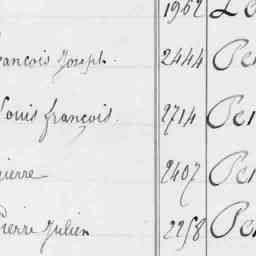 1962 Le
rançois Joseph. 2444 Per
Louis françois. 2714 Per
ierre 2407 Per
Pierre Julien 2258 Per